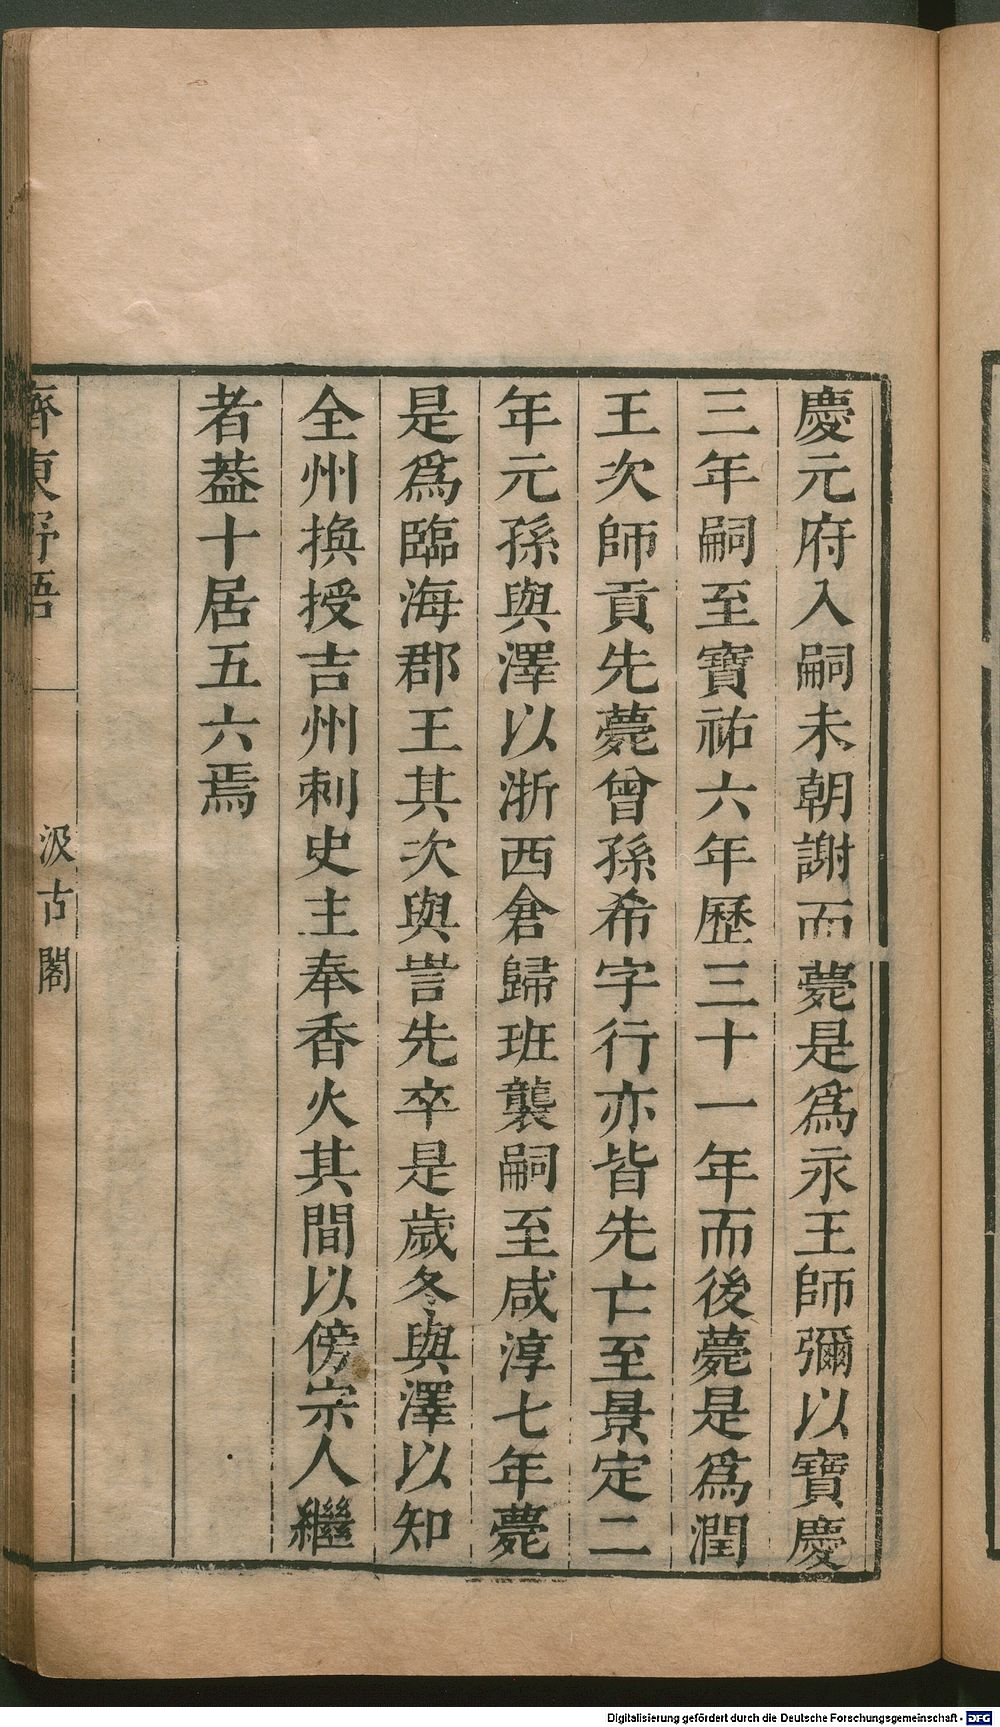 慶元府入嗣未朝謝而薨是爲永王師彌以寶慶
三年嗣至寶祐六年歷三十一年而後薨是爲潤
王次師貢先薨曾孫希字行亦皆先亡至景定二
年元孫與澤以浙西倉歸班襲嗣至咸淳七年薨
是爲臨海郡王其次與訔先卒是歲冬與澤以知
全州換授吉州刺史主奉香火其間以傍宗人繼
者葢十居五六焉
齊東野語
汲古閣
Digitalisierung gefördert durch die Deutsche Forschungsgemeinschaft - DFG